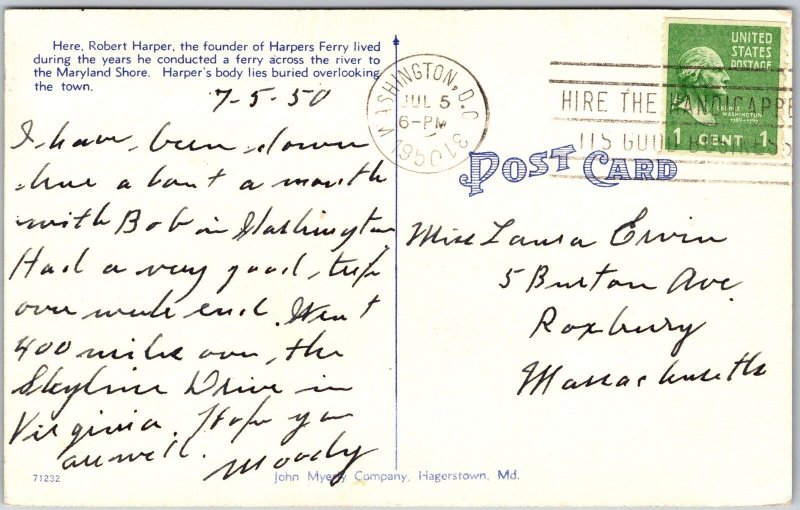 Here, Robert Harper, the founder of Harpers Ferry lived
during the years he conducted a ferry across the river to
the Maryland Shore. Harper's body lies buried overlooking
the town.
7-5-50
I have been down
here about a month
with Bob in Washington
Had a very good trip
over week end. Went
400 miles over the
Skyline Drive in
Virginia. Hope you
are well. Moody
71232
WASHINGTON, D.C. 13
JUL 5
6-PM
1950
HIRE THE HANDICAPPE
ITS GOOD BUSINESS
UNITED
STATES
POSTAGE
GEORGE
WASHINGTON
1789-1797
1 CENT 1
POST CARD
Miss Laura Ervin
5 Burton Ave.
Roxbury
Massachusetts
John Myerly Company, Hagerstown, Md.